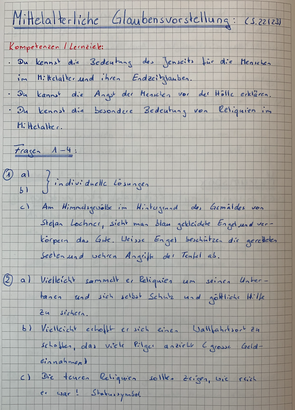 Mittelalterliche Glaubensvorstellung: (S. 22/23)
Kompetenzen / Lernziele:
· Du kennst die Bedeutung des Jenseits für die Menschen
im Mittelalter und ihren Endzeitglauben.
· Du kannst die Angst der Menschen vor der Hölle erklären.
· Du kennst die besondere Bedeutung von Reliquien im
Mittelalter.
Fragen 1-4:
① a)
b) } individuelle Lösungen
c) Am Himmelsgewölbe im Hintergrund des Gemäldes von
Stefan Lochner, sieht man blau gekleidete Engel und ver-
körpern das Gute. Weisse Engel beschützen die geretteten
Seelen und wehren Angriffe der Teufel ab.
② a) Vielleicht sammelt er Reliquien um seinen Unter-
tanen und sich selbst Schutz und göttliche Hilfe
zu sichern.
b) Vielleicht erhofft er sich einen Wallfahrtsort zu
schaffen, das viele Pilger anzieht (grosse Geld-
einnahmen)
c) Die teuren Reliquien sollten zeigen, wie reich
er war! Statussymbol